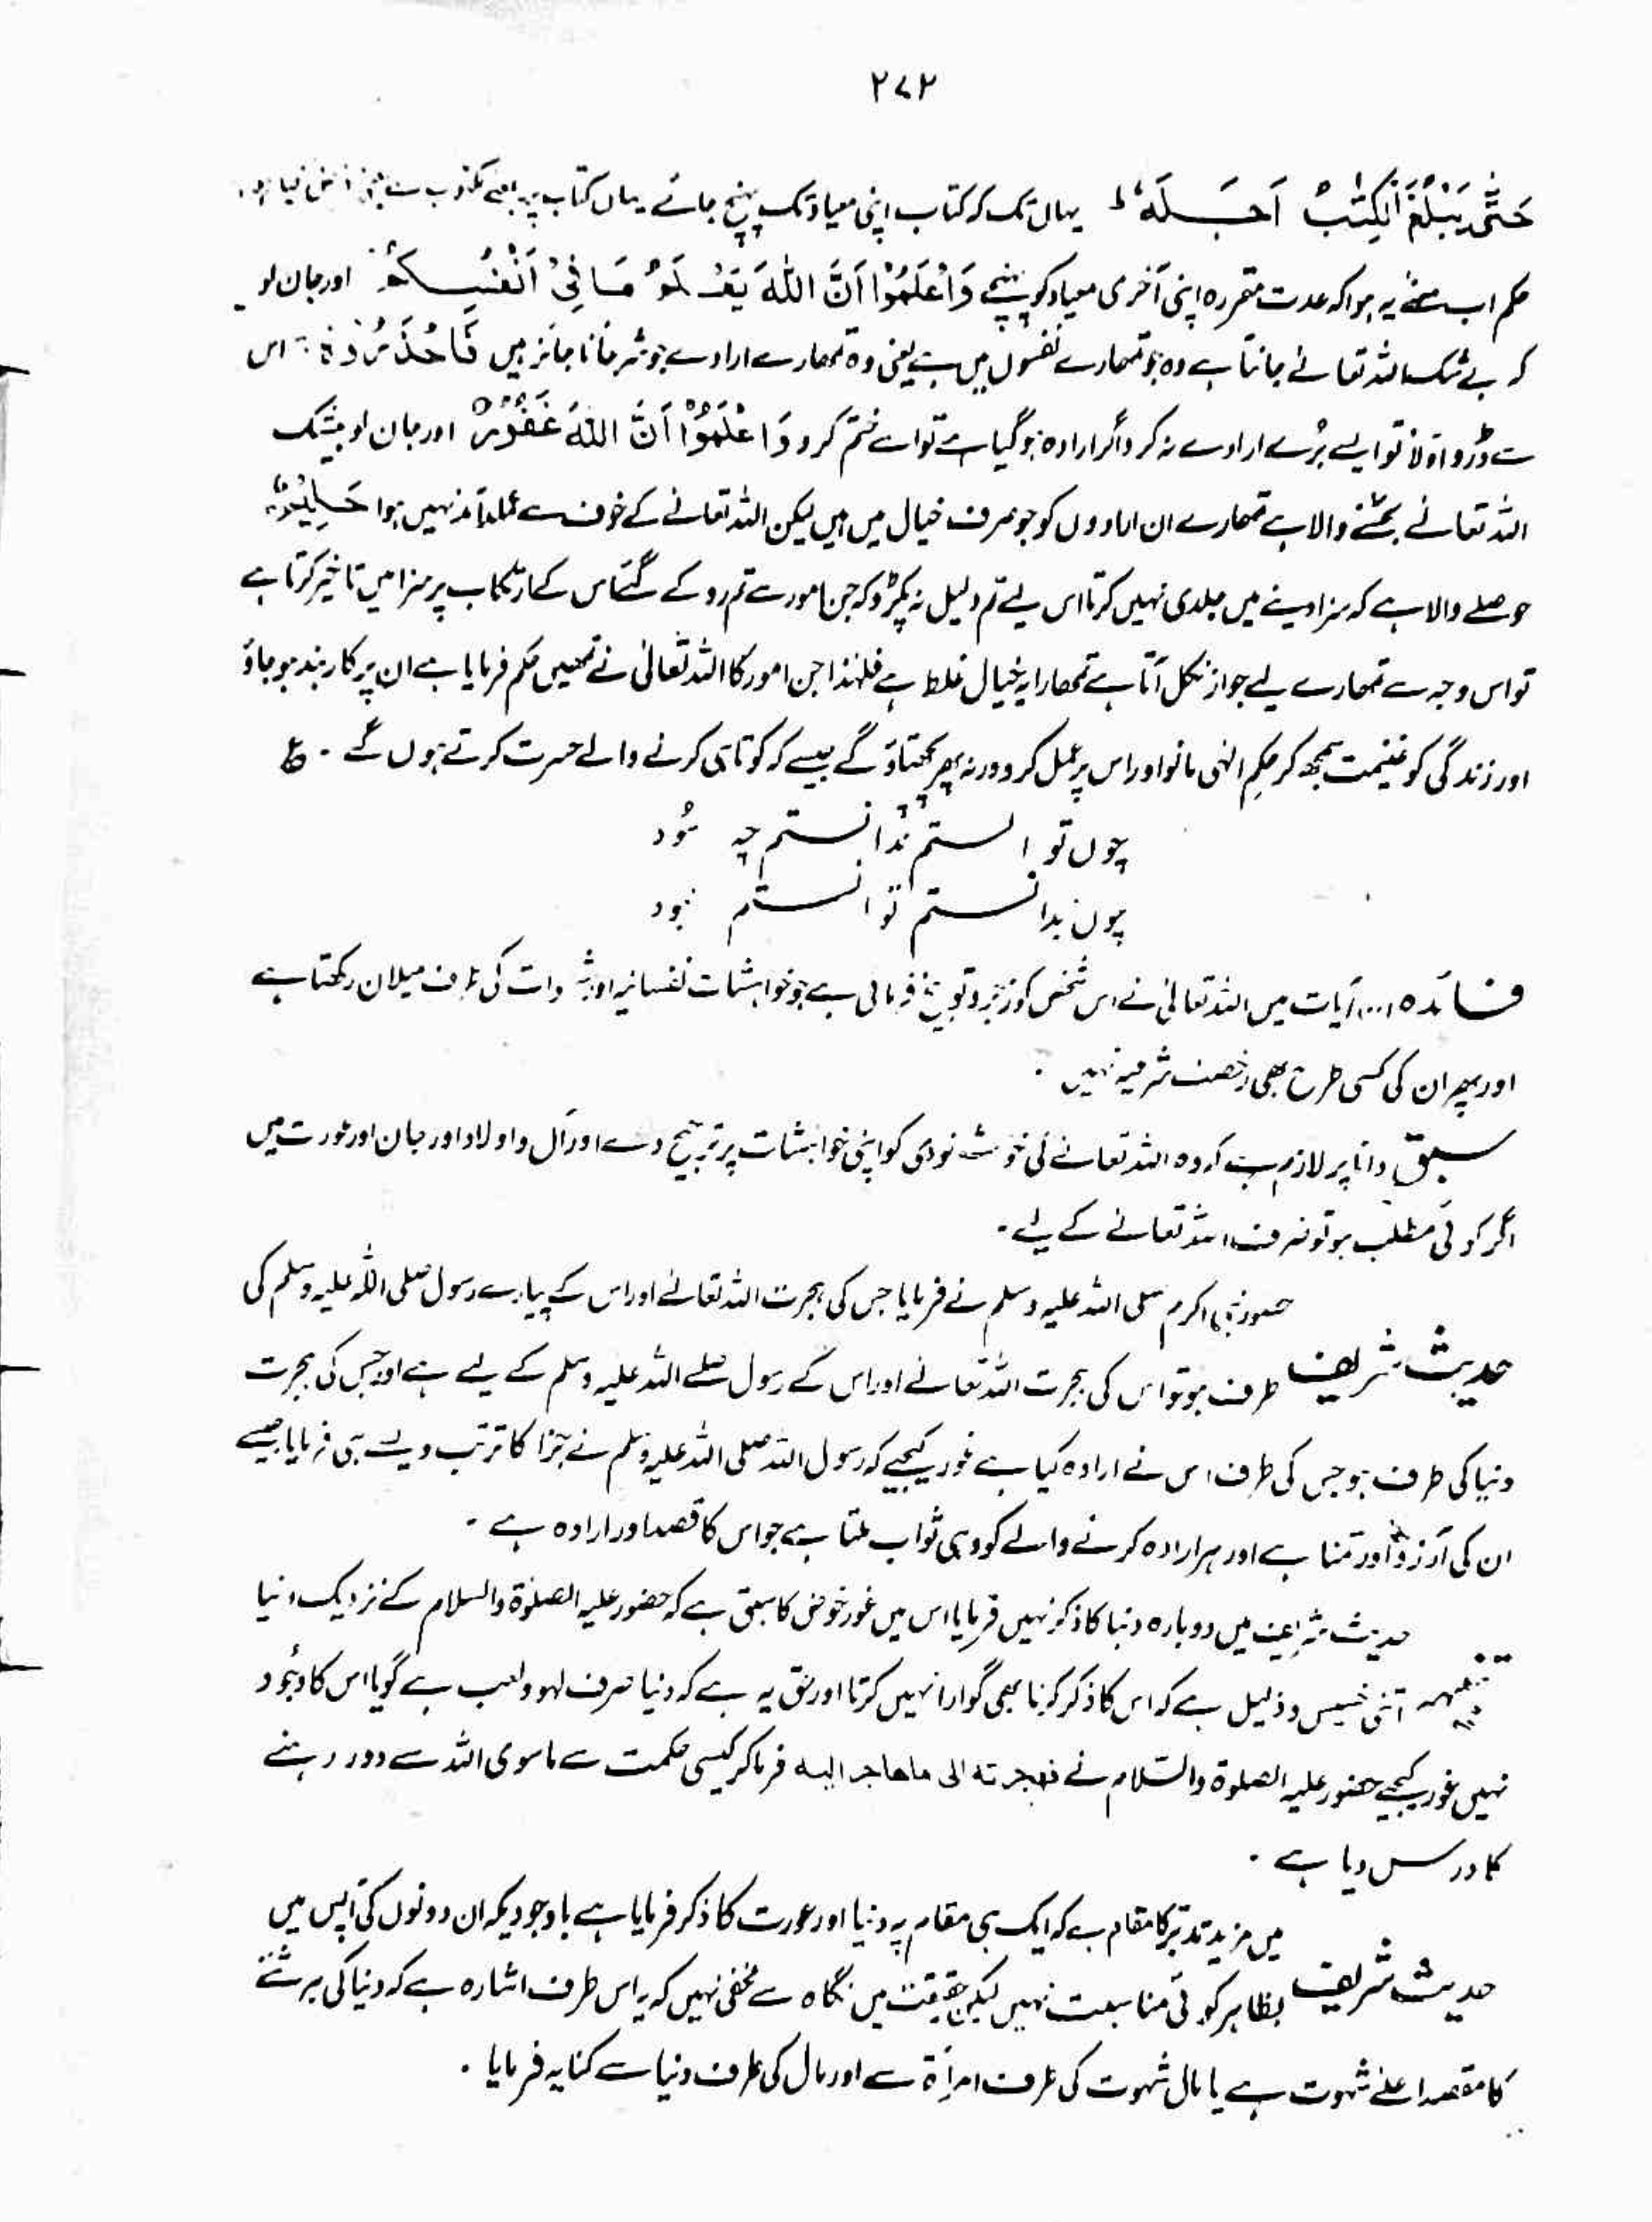 ۲۷۲
حَتّٰی یَبْلُغَ الْکِتٰبُ اَجَلَهٗ ط یہاں تک کہ کتاب اپنی میعاد تک پہنچ جائے یہاں کتاب
حکم اب معنے یہ ہوا کہ عدت مقررہ اپنی آخری میعاد کو پہنچے وَاعْلَمُوْا اَنَّ اللّٰهَ یَعْلَمُ مَا فِیْ اَنْفُسِکُمْ اور جان لو
کہ بے شک اللہ تعالےٰ جانتا ہے وہ جو تمھارے نفسوں میں ہے یعنی وہ تمھارے ارادے جو شرعاً ناجائز ہیں فَاحْذَرُوْهُ ج اس
سے ڈرو اوّلاً تو ایسے بُرے ارادے نہ کرو اگر ارادہ ہو گیا ہے تو اسے ختم کرو وَاعْلَمُوْا اَنَّ اللّٰهَ غَفُوْرٌ اور جان لو بیشک
اللہ تعالےٰ بخشنے والا ہے تمھارے ان ارادوں کو جو صرف خیال میں ہیں لیکن اللہ تعالےٰ کے خوف سے عملدرآمد نہیں ہوا حَلِیْمٌ
حوصلے والا ہے کہ سزا دینے میں جلدی نہیں کرتا اس لیے تم دلیل نہ پکڑو کہ جن امور سے تم روکے گئے اس کے ارتکاب پر سزا میں تاخیر کرتا ہے
تو اس وجہ سے تمھارے لیے جواز نکل آتا ہے تمھارا یہ خیال غلط ہے فلہٰذا جن امور کا اللہ تعالیٰ نے تمھیں حکم فرمایا ہے ان پر کاربند ہو جاؤ
اور زندگی کو غنیمت سمجھ کر حکمِ الٰہی مانو اور اس پر عمل کرو ورنہ پھر پچھتاؤ گے جیسے کہ کوتاہی کرنے والے حسرت کرتے ہوں گے ۔ ع
چوں توانستم ندانستم چہ سُود
چوں بدانستم توانستم نبود
فائدہ ... آیات میں اللہ تعالیٰ نے اس شخص کو زجر و توبیخ فرمائی ہے جو خواہشات نفسانیہ اور شہوات کی طرف میلان رکھتا ہے
اور پھر ان کی کسی طرح بھی رخصت شرعیہ نہیں ۔
سبق دانا پر لازم ہے کہ وہ اللہ تعالےٰ کی خوشنودی کو اپنی خواہشات پر ترجیح دے اور آل و اولاد اور جان اور عورت میں
اگر کوئی مطلب ہو تو صرف اللہ تعالےٰ کے لیے ۔
حضور نبی اکرم صلی اللہ علیہ وسلم نے فرمایا جس کی ہجرت اللہ تعالےٰ اور اس کے پیارے رسول صلی اللہ علیہ وسلم کی
حدیث شریف طرف ہو تو اس کی ہجرت اللہ تعالےٰ اور اس کے رسول صلے اللہ علیہ وسلم کے لیے ہے اور جس کی ہجرت
دنیا کی طرف ہو جس کی طرف اس نے ارادہ کیا ہے غور کیجیے کہ رسول اللہ صلی اللہ علیہ وسلم نے جزا کا ترتب ویسے ہی فرمایا جیسے
ان کی آرزو اور تمنا ہے اور ہر ارادہ کرنے والے کو وہی ثواب ملتا ہے جو اس کا قصد اور ارادہ ہے ۔
حدیث شریف میں دوبارہ دنیا کا ذکر نہیں فرمایا اس میں غور خوض کا سبق ہے کہ حضور علیہ الصلوٰۃ والسلام کے نزدیک دنیا
تنبیہہ اتنی خسیس و ذلیل ہے کہ اس کا ذکر کرنا بھی گوارا نہیں کرتا اور حق یہ ہے کہ دنیا صرف لہو و لعب ہے گویا اس کا وجُود
نہیں غور کیجیے حضور علیہ الصلوۃ والسّلام نے فھجرتہ الی ماھاجر الیہ فرما کر کیسی حکمت سے ماسوی اللہ سے دور رہنے
کا درس دیا ہے ۔
میں مزید تدبّر کا مقام ہے کہ ایک ہی مقام پہ دنیا اور عورت کا ذکر فرمایا ہے باوجودیکہ ان دونوں کی آپس میں
حدیث شریف بظاہر کوئی مناسبت نہیں لیکن حقیقت میں نگاہ سے مخفی نہیں کہ یہ اس طرف اشارہ ہے کہ دنیا کی ہر شئے
کا مقصد اعلےٰ شہوت ہے یا مال شہوت کی طرف امرأة سے اور مال کی طرف دنیا سے کنایہ فرمایا ۔